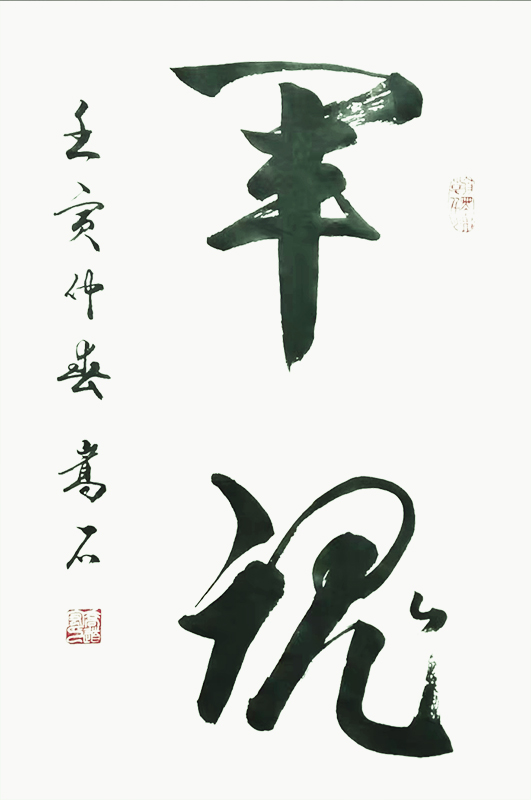 軍魂
壬寅仲春 嵩石